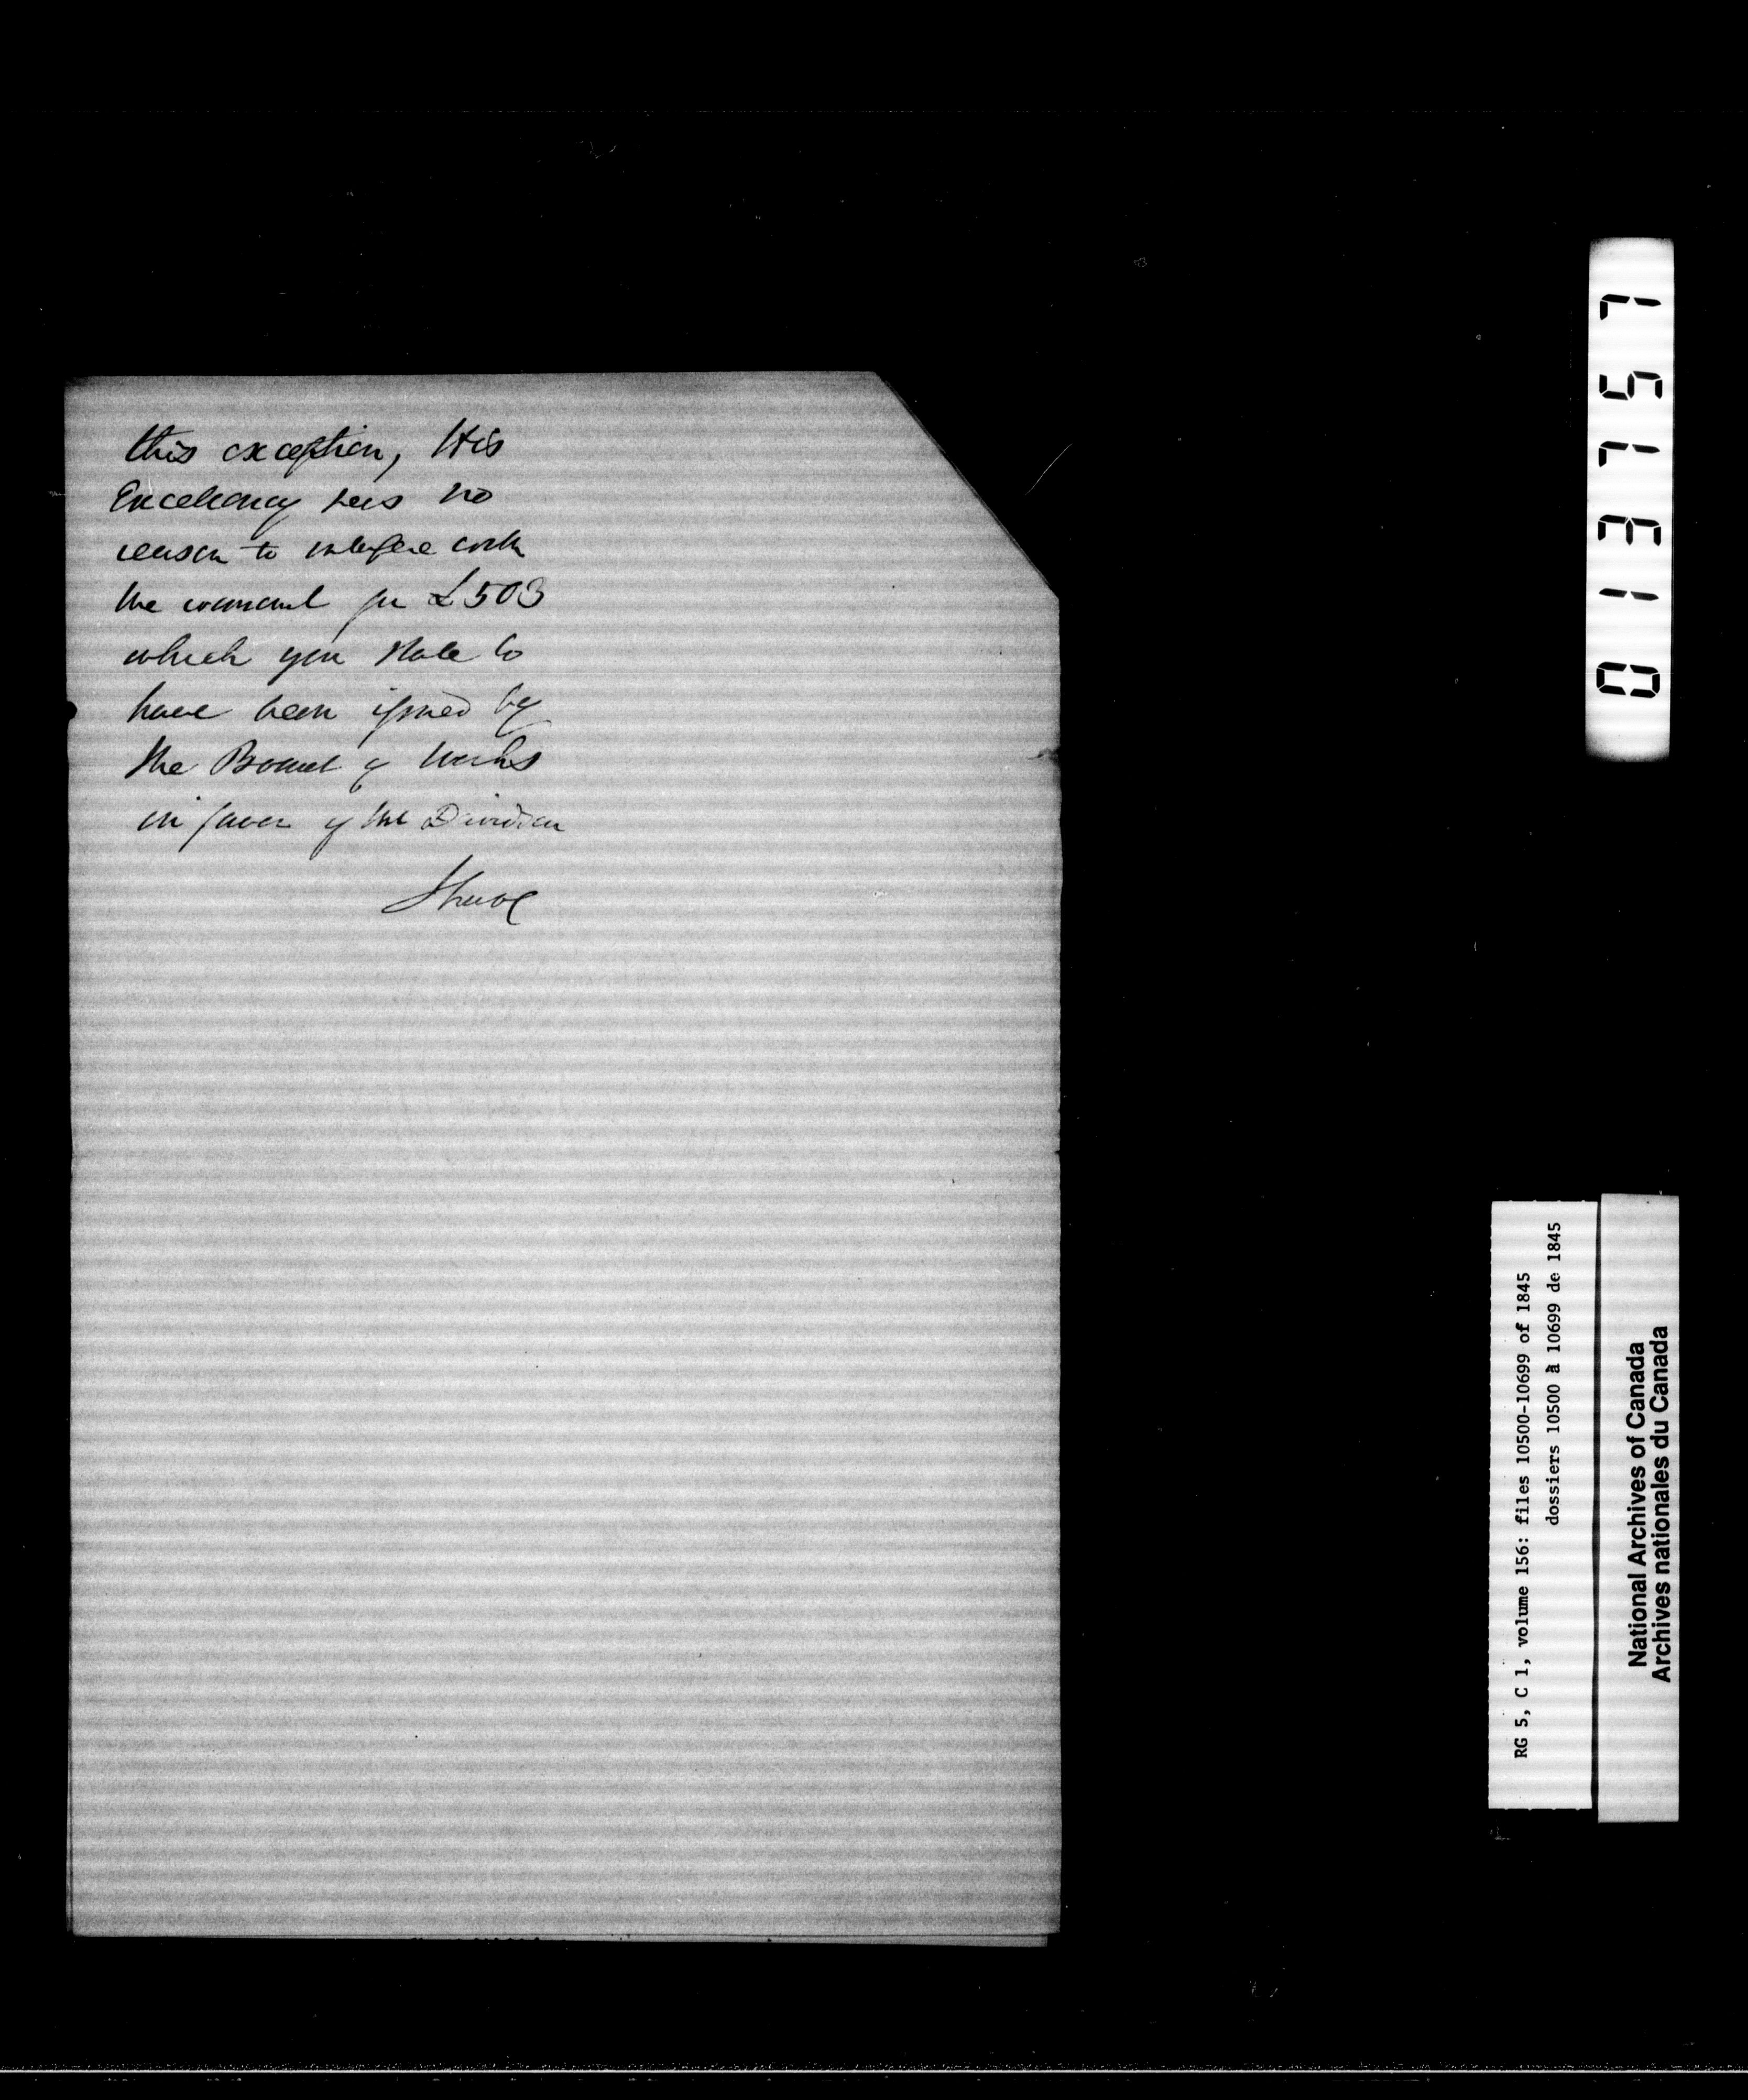 this exception, His
Excellency sees no
reason to interfere with
the warrant for £503
which you state to
have been issued by
the Board of Works
in favor of Mr Davidson
I have
013757
RG 5, C 1, volume 156: files 10500-10699 of 1845
dossiers 10500 à 10699 de 1845
National Archives of Canada
Archives nationales du Canada